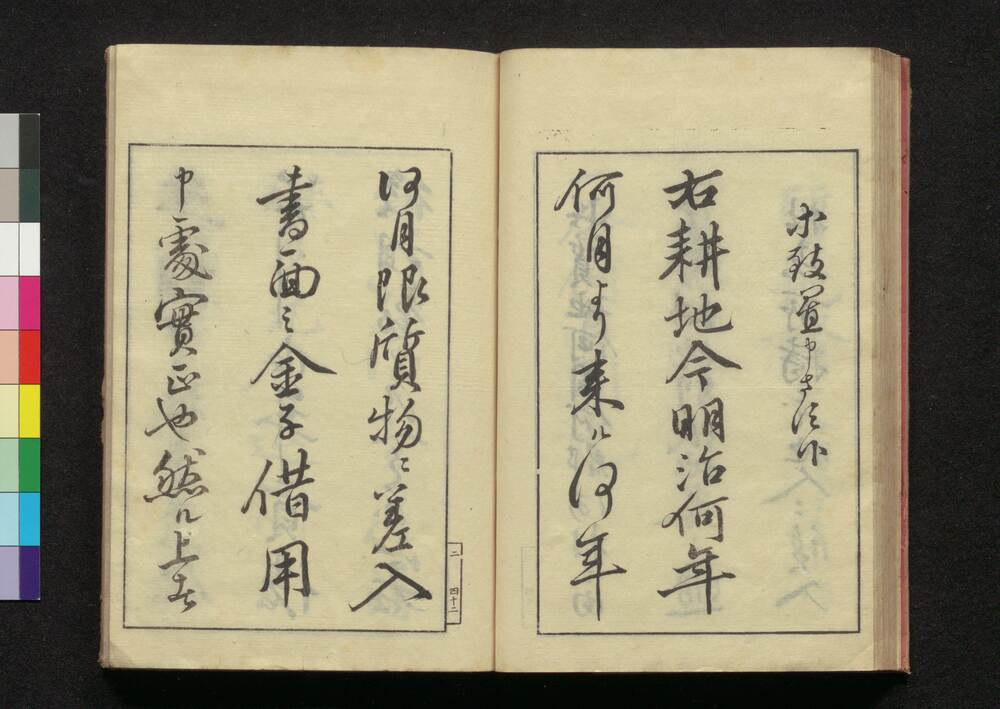 右耕地今明治何年
何月より来ル何年
何月限質物ニ差入
書面之金子借用
申處實正也然ル上者
二 四十二